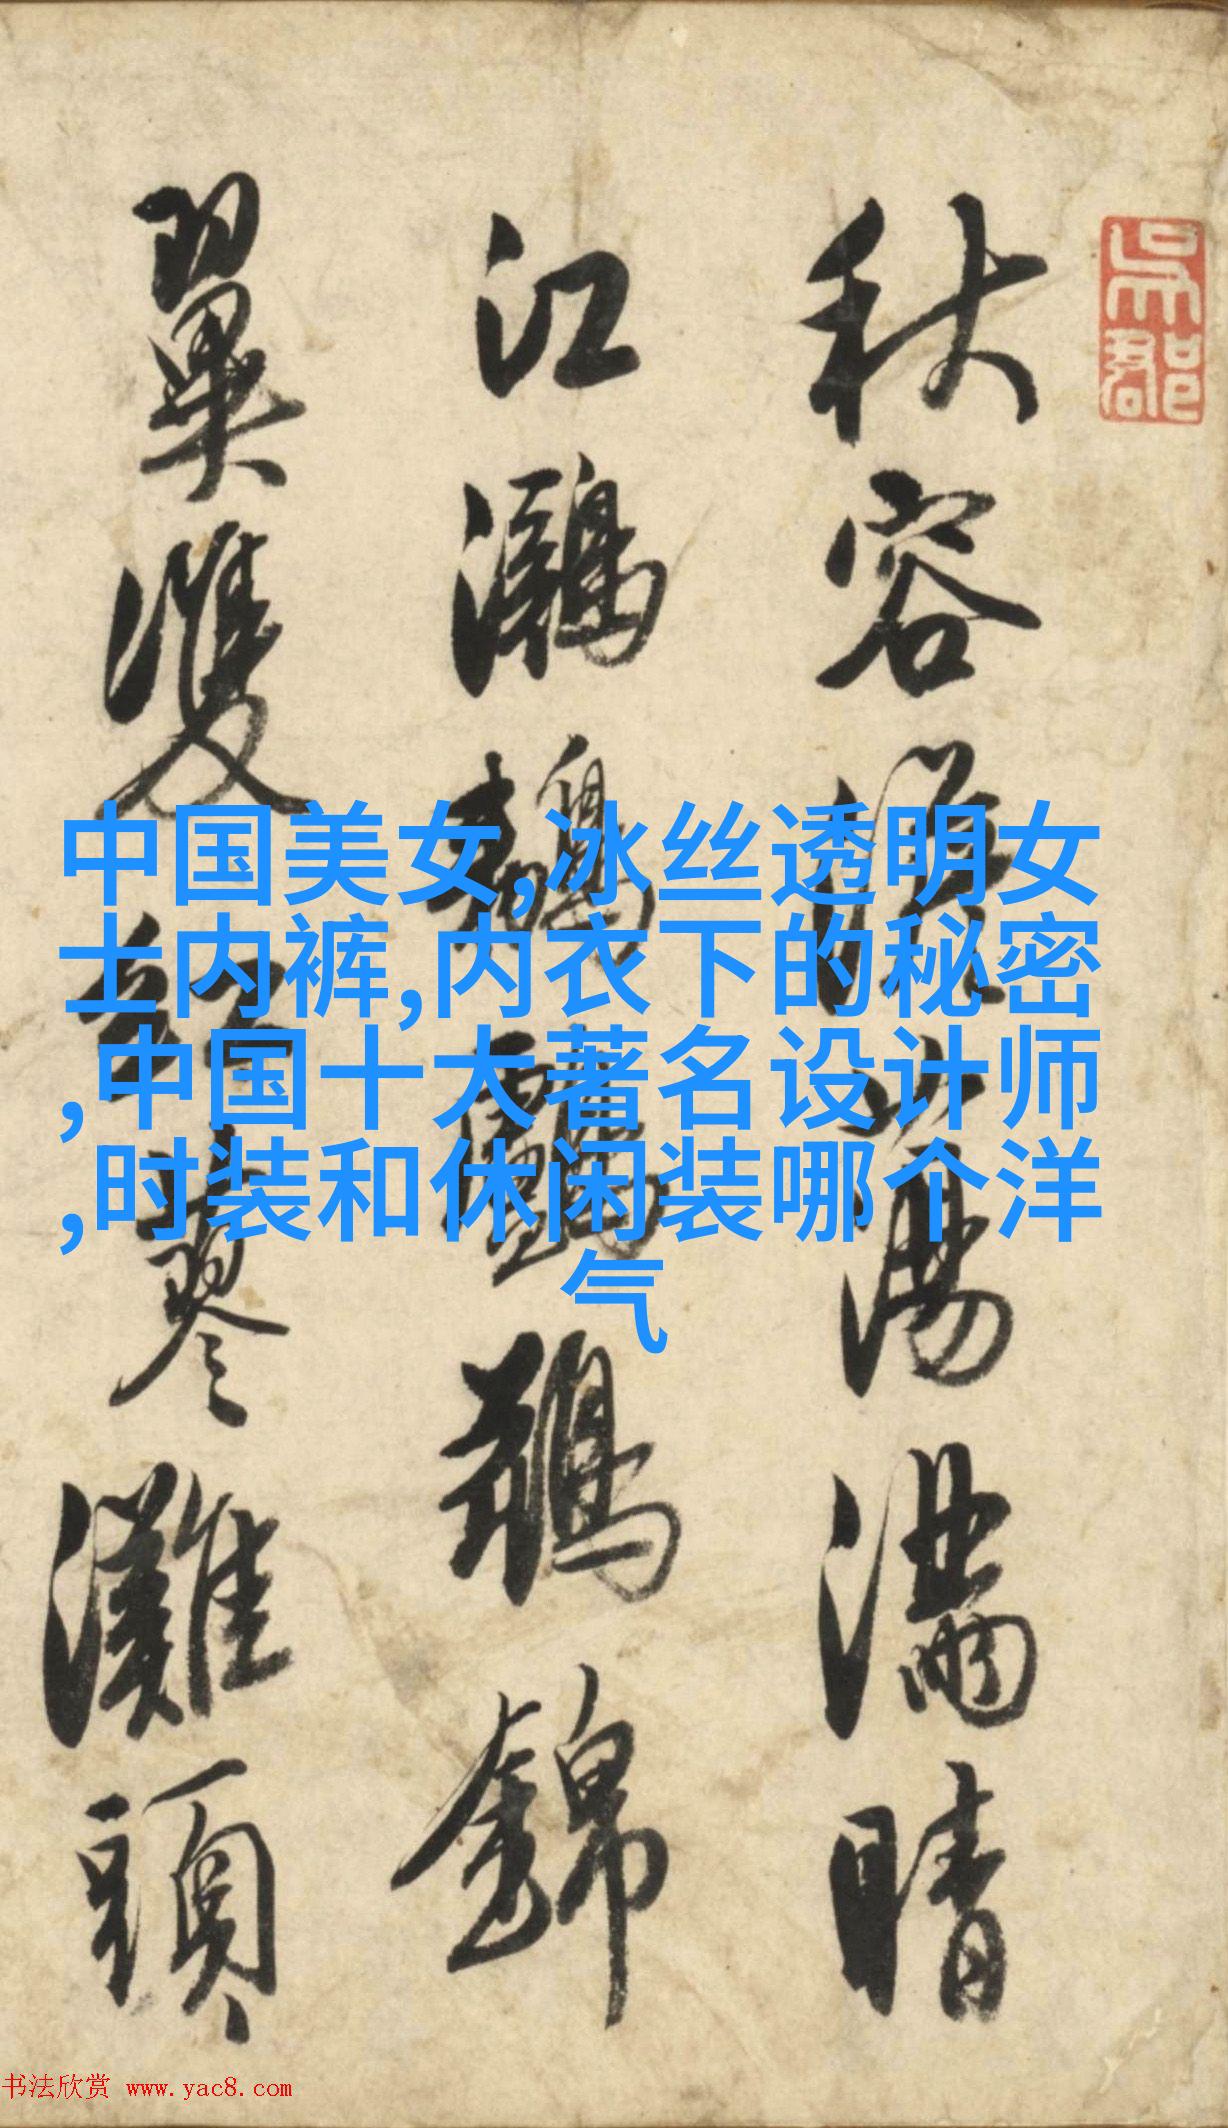 吳郡
秋容淡蕩滿晴
江鸂鶒鸕鶿錦
翼雙紅蓼灘頭
中国美女,冰丝透明女
士内裤,内衣下的秘密
,中国十大著名设计师
,时装和休闲装哪个洋
气
书法欣赏 www.yac8.com